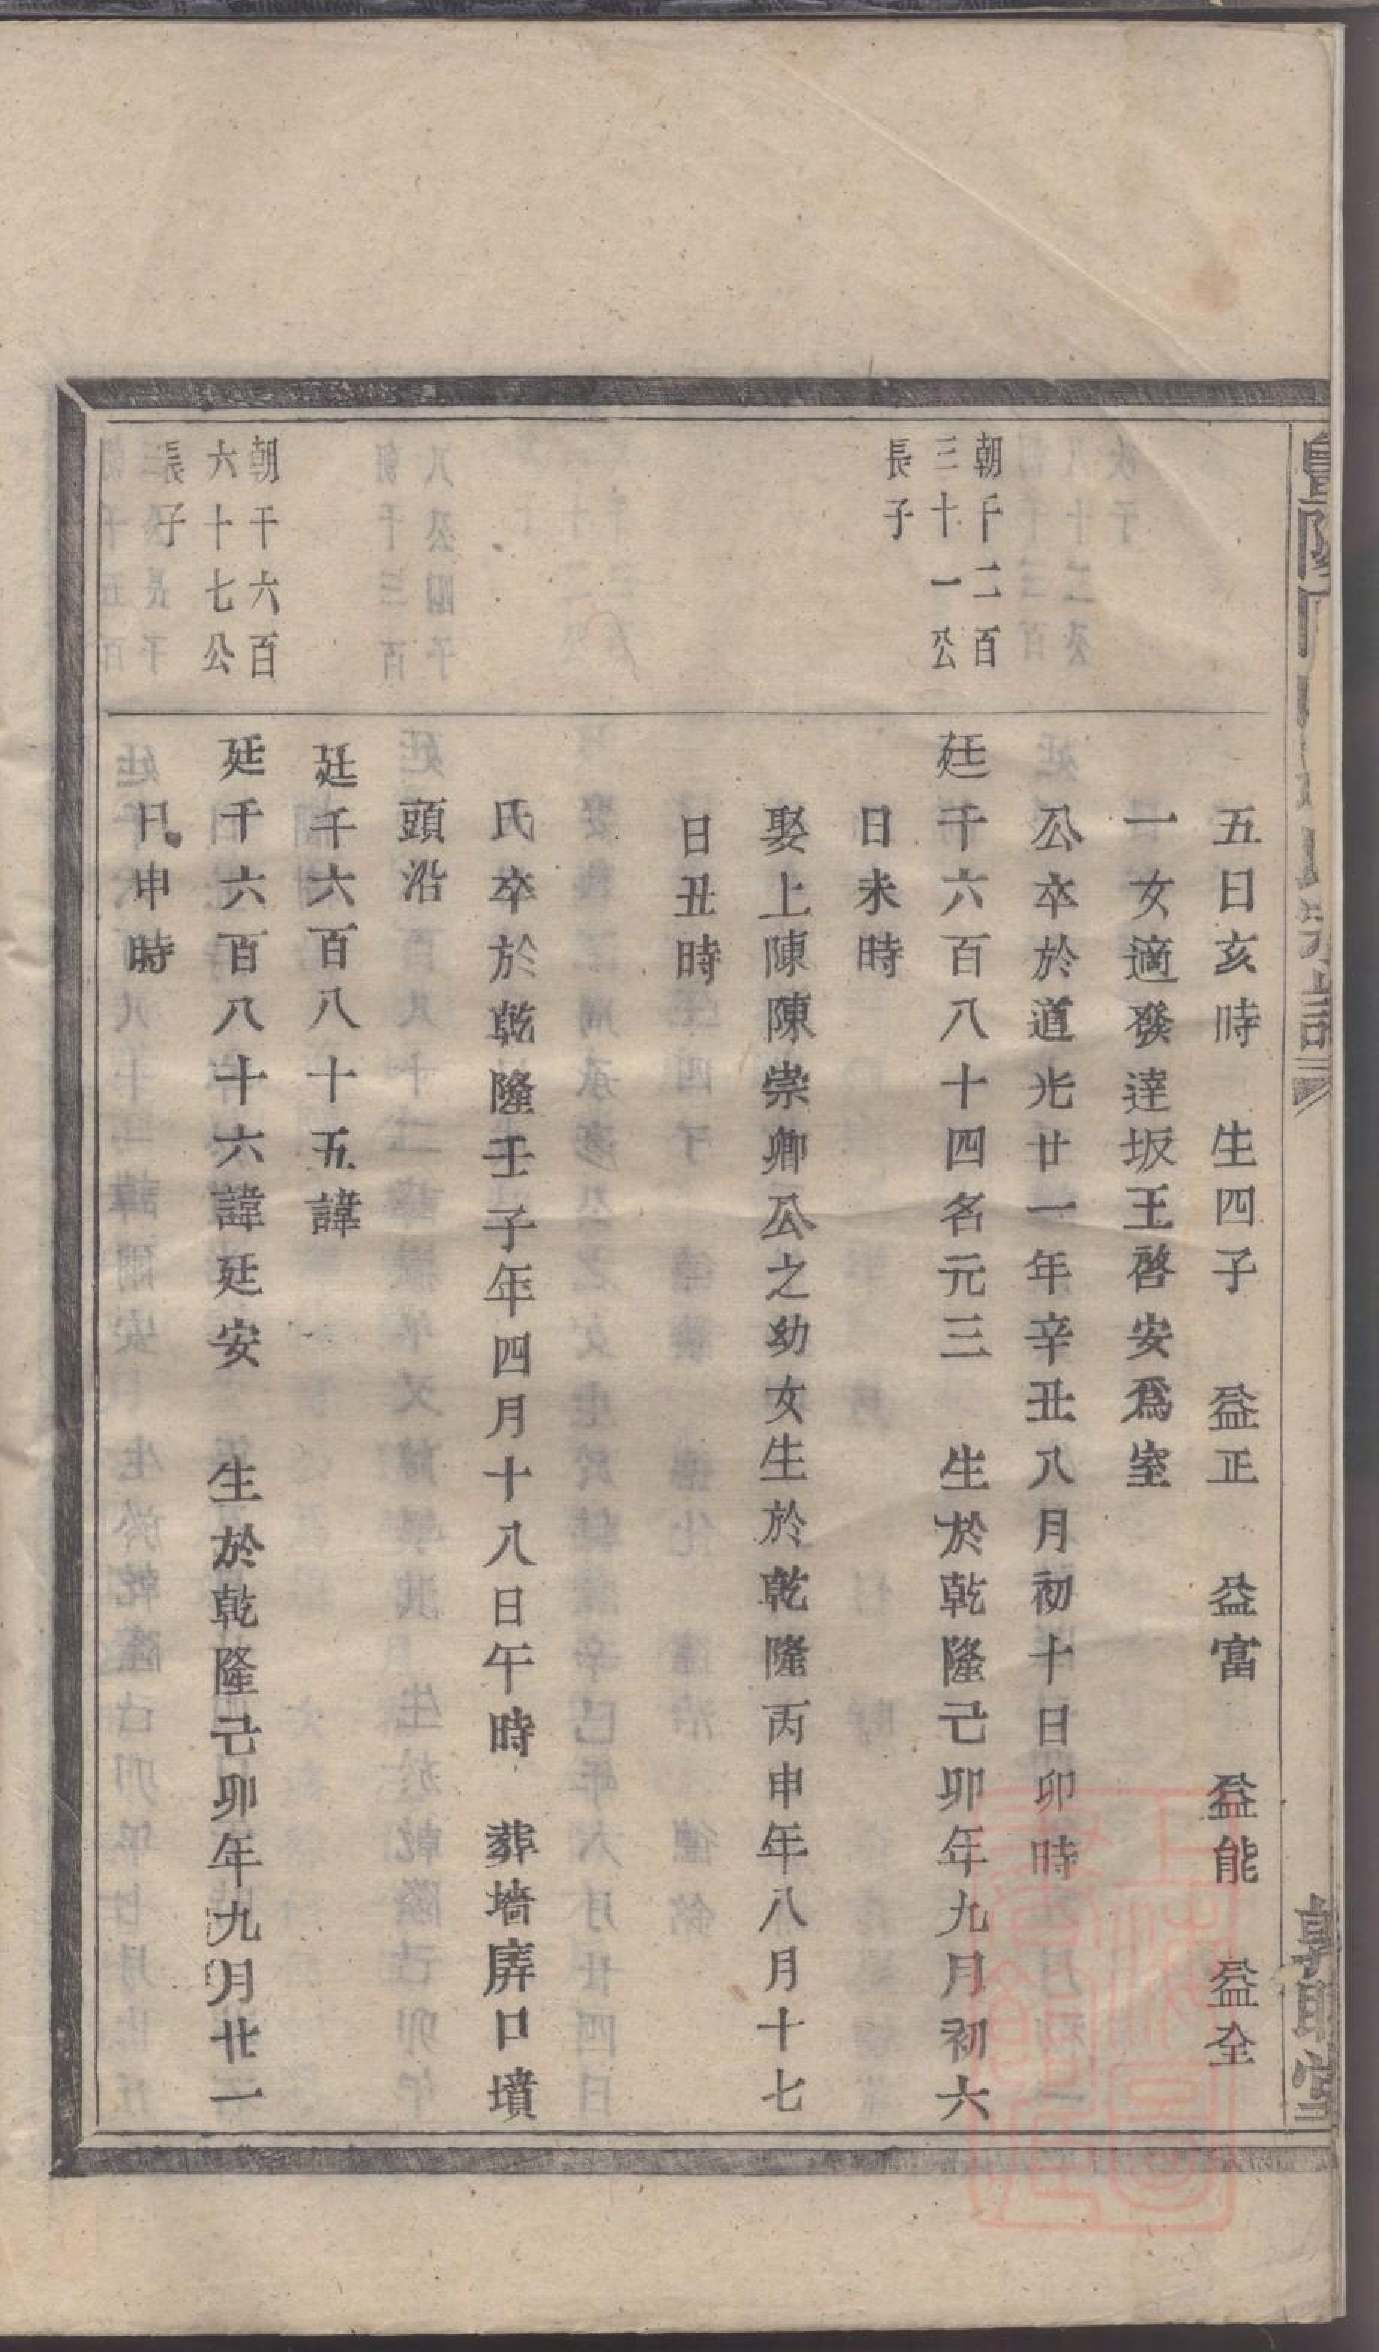 五日亥時　生四子　益正　益富　益能　益全
一女適發達坂王啓安爲室
公卒於道光廿一年辛丑八月初十日卯時
朝千二百
三十一公
長子
廷千六百八十四名元三　生於乾隆己卯年九月初六
日未時
娶上陳陳崇卿公之幼女生於乾隆丙申年八月十七
日丑時
氏卒於乾隆壬子年四月十八日午時　葬墻庰口墳
頭沿
廷千六百八十五諱
朝千六百
六十七公
長子
廷千六百八十六諱廷安　生於乾隆己卯年九月廿一
日申時